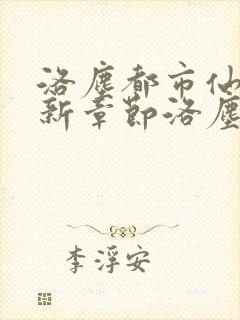 洛塵都市仙
新章節洛塵
李浮安